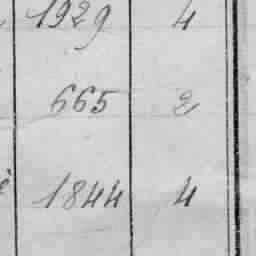 1929 4
665 2
1844 4